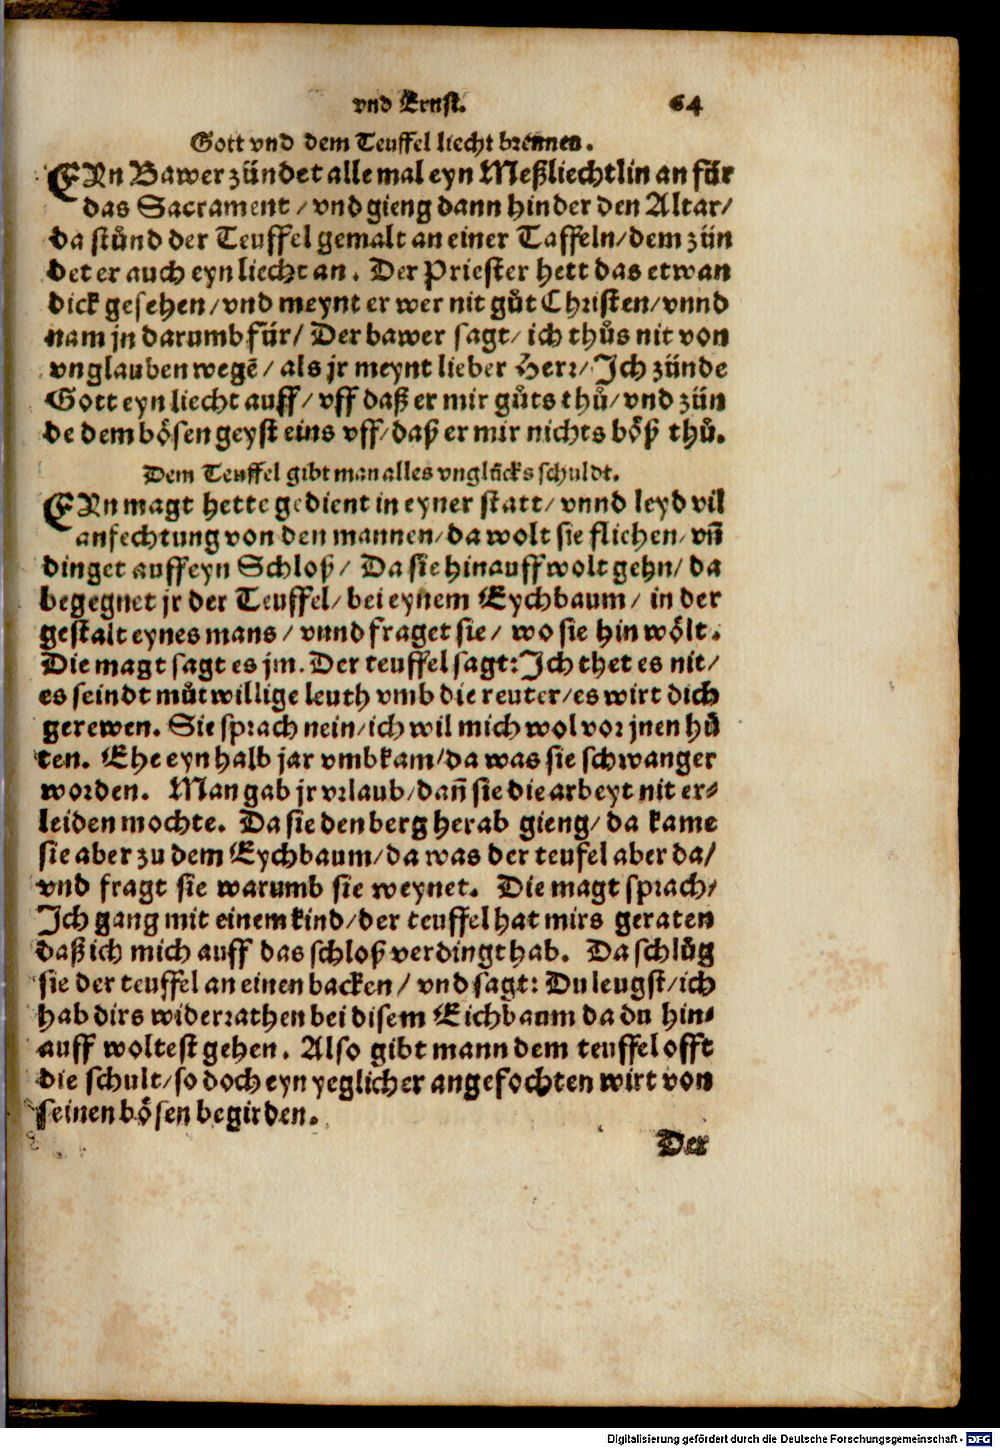 vnd Ernst. 64
Gott vnd dem Teuffel liecht brennen.
EYn Bawer zündet alle mal eyn Meßliechtlin an für
das Sacrament / vnd gieng dann hinder den Altar/
da stůnd der Teuffel gemalt an einer Taffeln/ dem zün
det er auch eyn liecht an. Der Priester hett das etwan
dick gesehen/ vnd meynt er wer nit gůt Christen/ vnnd
nam jn darumb für/ Der bawer sagt/ ich thůs nit von
vnglauben wegē/ als jr meynt lieber Herr/ Ich zünde
Gott eyn liecht auff/ vff daß er mir gůts thů/ vnd zün
de dem bösen geyst eins vff/ daß er mir nichts böß thů.
Dem Teuffel gibt man alles vnglücks schuldt.
EYn magt hette gedient in eyner statt/ vnnd leyd vil
anfechtung von den mannen/ da wolt sie fliehen/ vñ
dinget auff eyn Schloß/ Da sie hinauff wolt gehn/ da
begegnet jr der Teuffel/ bei eynem Eychbaum/ in der
gestalt eynes mans/ vnnd fraget sie/ wo sie hin wölt.
Die magt sagt es jm. Der teuffel sagt: Ich thet es nit/
es seindt můtwillige leuth vmb die reuter/ es wirt dich
gerewen. Sie sprach nein/ ich wil mich wol vor jnen hů
ten. Ehe eyn halb jar vmbkam/ da was sie schwanger
worden. Man gab jr vrlaub/ dañ sie die arbeyt nit er-
leiden mochte. Da sie den berg herab gieng/ da kame
sie aber zu dem Eychbaum/ da was der teufel aber da/
vnd fragt sie warumb sie weynet. Die magt sprach/
Ich gang mit einem kind/ der teuffel hat mirs geraten
daß ich mich auff das schloß verdingt hab. Da schlůg
sie der teuffel an einen backen/ vnd sagt: Du leugst/ ich
hab dirs widerrathen bei disem Eichbaum da du hin-
auff woltest gehen. Also gibt mann dem teuffel offt
die schult/ so doch eyn yeglicher angefochten wirt von
seinen bösen begirden.
Der
Digitalisierung gefördert durch die Deutsche Forschungsgemeinschaft - DFG